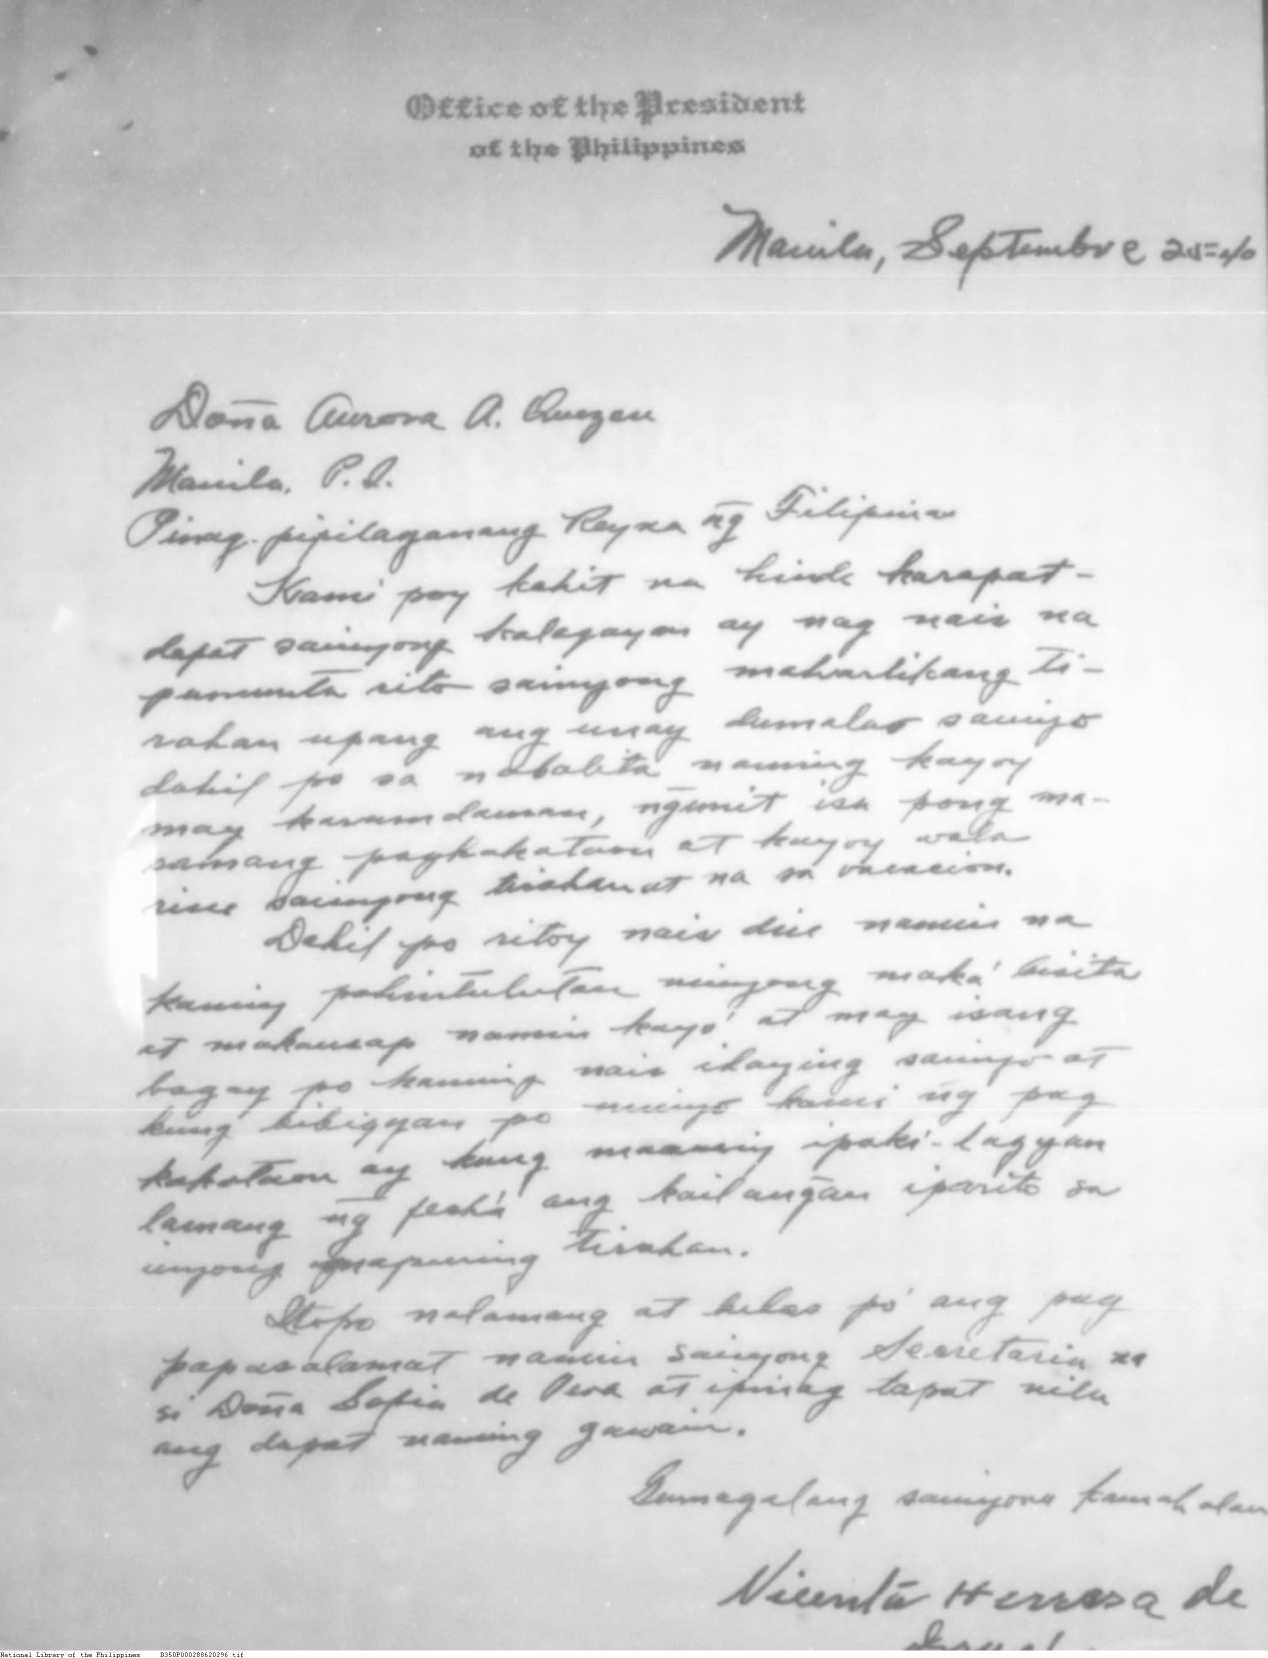 Office of the President
of the Philippines
Manila, Septembre 25=40
Doña Aurora A. Quezon
Manila. P.I.
Pinag-pipilaganang Reyna ng̃ Filipinas
Kami poy kahit na hinde karapat-
dapat sainyong kalagayan ay nag nais na
pumunta rito sainyong maharlikang ti-
rahan upang ang unay dumalao sainyo
dahil po sa nabalita naming kayoy
may karamdaman, ng̃unit isa pong ma-
samang pagkakataon at kayoy wala
rine sainyong tirahan at na sa vacacion.
Dahil po ritoy nais din namin na
kamiy pahintulutan ninyong maka' bisita
at makausap namin kayo' at may isang
bagay po kaming nais idaying sainyo at
kung bibigyan po ninyo kami ng̃ pag
kakataon ay kung maaariy ipaki-lagyan
lamang ng̃ fecha ang kailang̃an iparito sa
inyong mapuring tirahan.
Ito po nalamang at labas po' ang pag
papasalamat namin sainyong Secretaria na
si Doña Sofia de Vera at ipinag tapat nila
ang dapat naming gawain.
Gumagalang sainyong kamahalan
Vicenta Herrera de